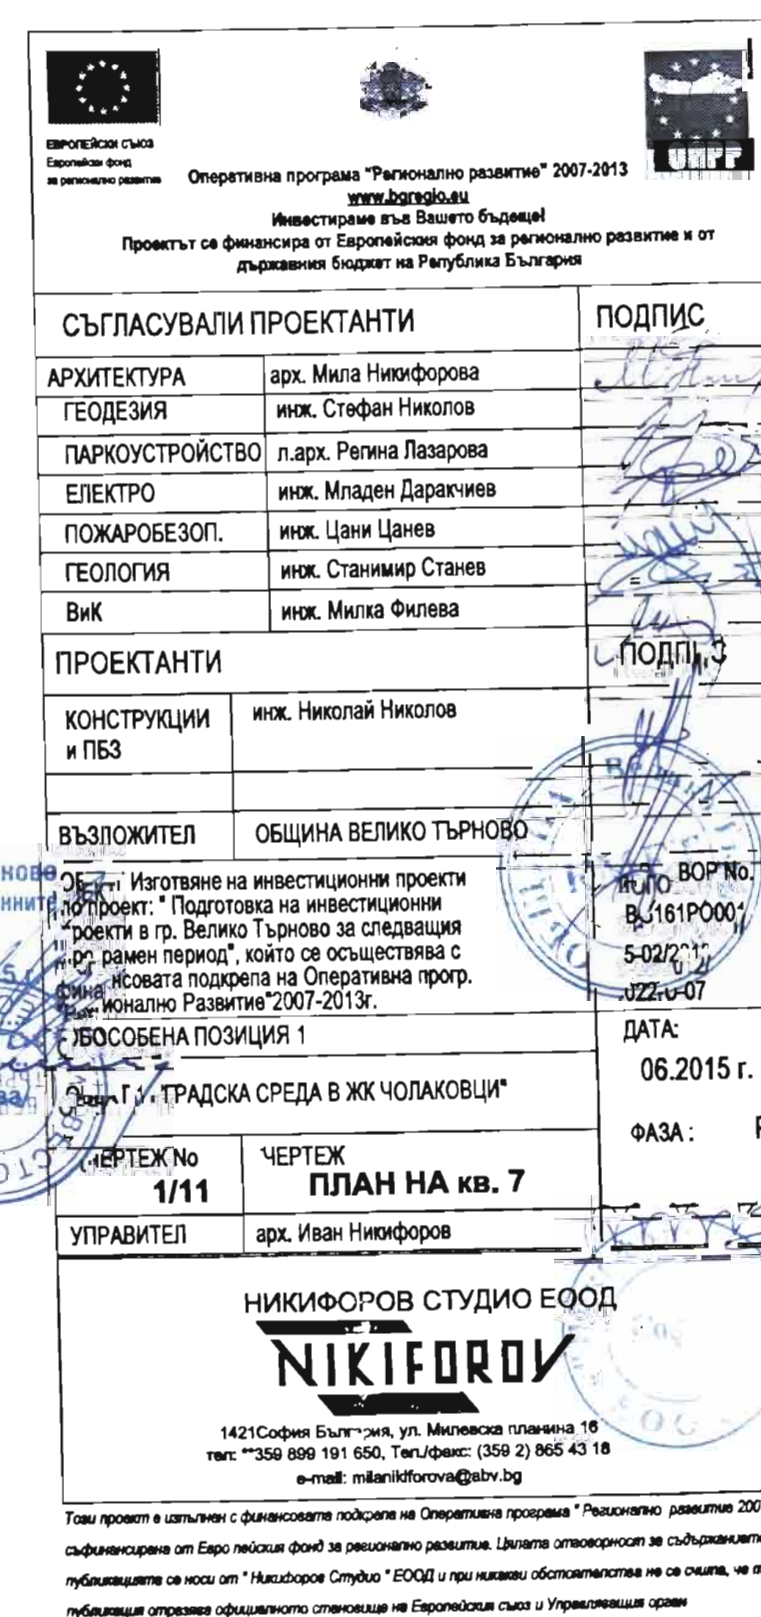 ЕВРОПЕЙСКИ СЪЮЗ
Европейски фонд
за регионално развитие
Оперативна програма "Регионално развитие" 2007-2013
www.bgregio.eu
Инвестираме във Вашето бъдеще!
Проектът се финансира от Европейския фонд за регионално развитие и от
държавния бюджет на Република България
СЪГЛАСУВАЛИ ПРОЕКТАНТИ ПОДПИС
АРХИТЕКТУРА арх. Мила Никифорова
ГЕОДЕЗИЯ инж. Стефан Николов
ПАРКОУСТРОЙСТВО л.арх. Регина Лазарова
ЕЛЕКТРО инж. Младен Даракчиев
ПОЖАРОБЕЗОП. инж. Цани Цанев
ГЕОЛОГИЯ инж. Станимир Станев
ВиК инж. Милка Филева
ПРОЕКТАНТИ ПОДПИС
КОНСТРУКЦИИ инж. Николай Николов
и ПБЗ
ВЪЗЛОЖИТЕЛ ОБЩИНА ВЕЛИКО ТЪРНОВО
Изготвяне на инвестиционни проекти
по проект: " Подготовка на инвестиционни
проекти в гр. Велико Търново за следващия
рамен период", който се осъществява с
нсовата подкрепа на Оперативна прогр.
ионално Развитие"2007-2013г.
BG161PO001
5-02/2012
ОБОСОБЕНА ПОЗИЦИЯ 1
ДАТА:
06.2015 г.
"ГРАДСКА СРЕДА В ЖК ЧОЛАКОВЦИ"
ФАЗА :
ЧЕРТЕЖ No ЧЕРТЕЖ
1/11 ПЛАН НА кв. 7
УПРАВИТЕЛ арх. Иван Никифоров
НИКИФОРОВ СТУДИО ЕООД
NIKIFOROV
1421София България, ул. Милевска планина 16
тел: **359 899 191 650, Тел./факс: (359 2) 865 43 18
e-mail: milanikiforova@abv.bg
Този проект е изпълнен с финансовата подкрепа на Оперативна програма " Регионално развитие 200
съфинансирана от Евро пейския фонд за регионално развитие. Цялата отговорност за съдържанието
публикацията се носи от " Никифоров Студио " ЕООД и при никакви обстоятелства не се счита, че
публикация отразява официалното становище на Европейския съюз и Управляващия орган